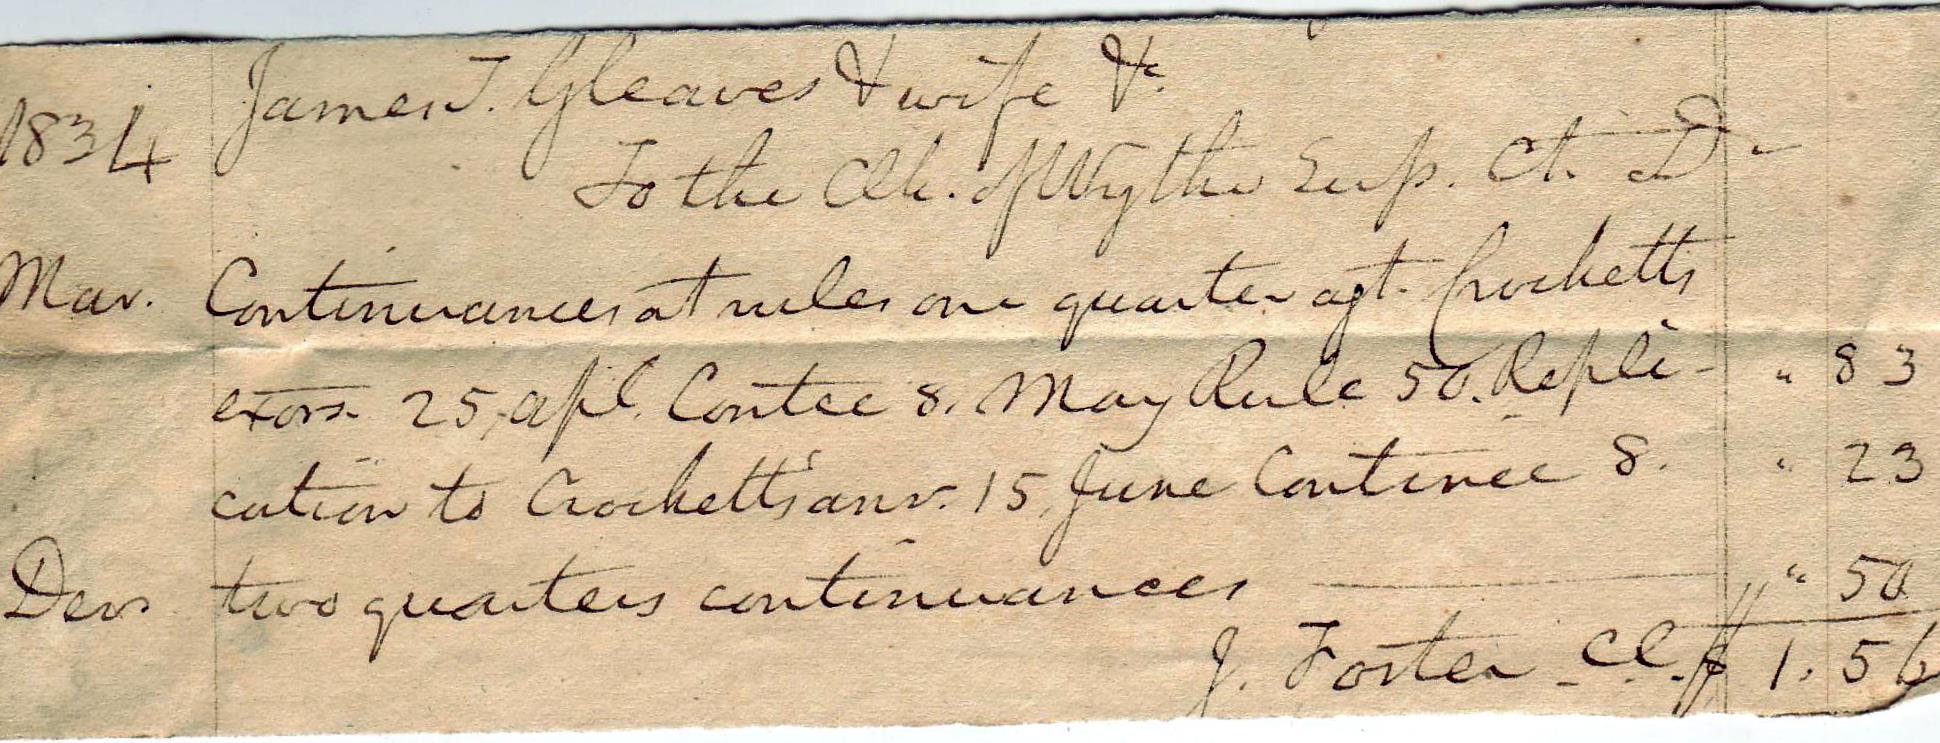 James T. Gleaves & wife &c
1834 To the Clk. of Wythe Sup. Ct. Dr
Mar. Continuances at rules one quarter agt. Crocketts
exors. 25, apl. Contce 8. May Rule 50. Repli- " 83
cation to Crocketts anr. 15, June Contince 8. " 23
Decr two quarters continuances " 50
J. Foster Cl $ 1. 56